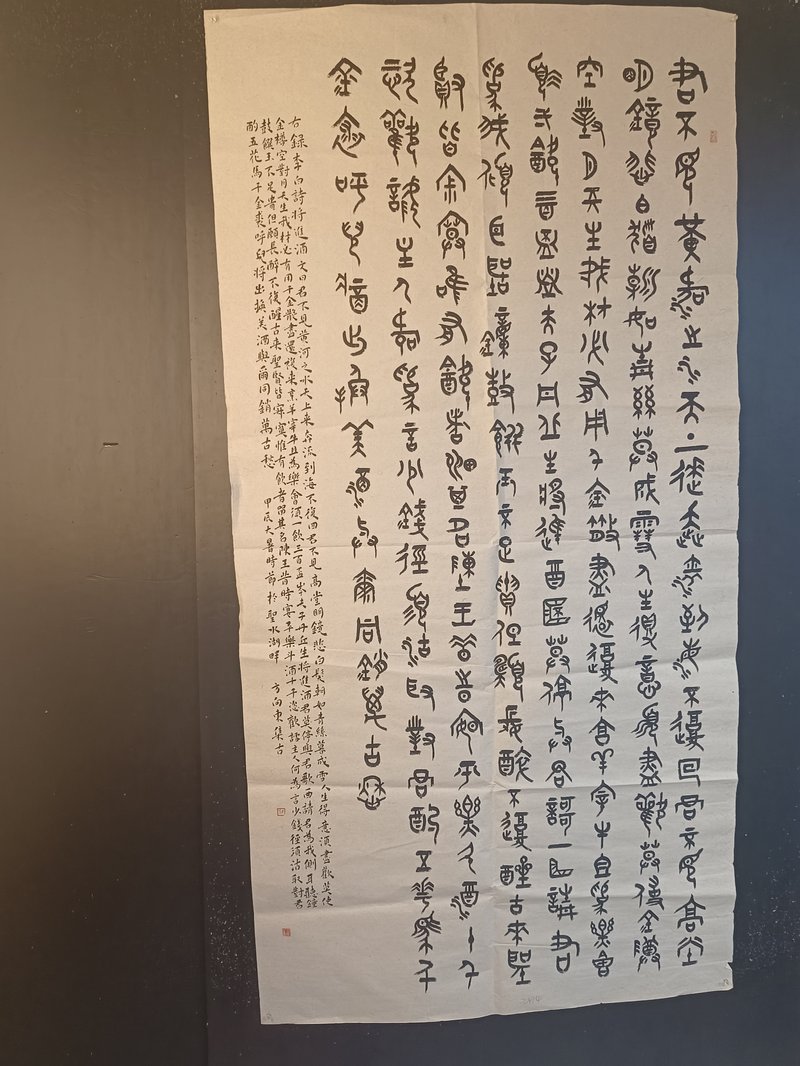 君不見黃河之水天上徠奔流到海不復回君不見高堂
明鏡悲白髮朝如青絲暮成雪人生得意須盡歡莫使金樽
空對月天生我材必有用千金散盡還復來亯羊宰牛且為樂會
須飲三百盃岑夫子丹丘生將進酒杯莫停與君謌一曲請君
為我傾耳聽鐘鼓饌玉不足貴但願長醉不復醒古來聖
賢皆寂寞唯有飲者留其名陳王昔時宴平樂斗酒十千
恣歡謔主人何為言少錢徑須沽取對君酌五花馬千
金裘呼兒將出換美酒與爾同銷萬古愁
右錄李白詩將進酒文曰君不見黃河之水天上來奔流到海不復回君不見高堂明鏡悲白髮朝如青絲暮成雪人生得意須盡歡莫使
金樽空對月天生我材必有用千金散盡還復來烹羊宰牛且為樂會須一飲三百盃岑夫子丹丘生將進酒君莫停與君歌一曲請君為我側耳聽鐘
鼓饌玉不足貴但願長醉不復醒古來聖賢皆寂寞惟有飲者留其名陳王昔時宴平樂斗酒十千恣歡謔主人何為言少錢徑須沽取對君
酌五花馬千金裘呼兒將出換美酒與爾同銷萬古愁 甲辰大暑時節於聖水湖畔 方向東集古